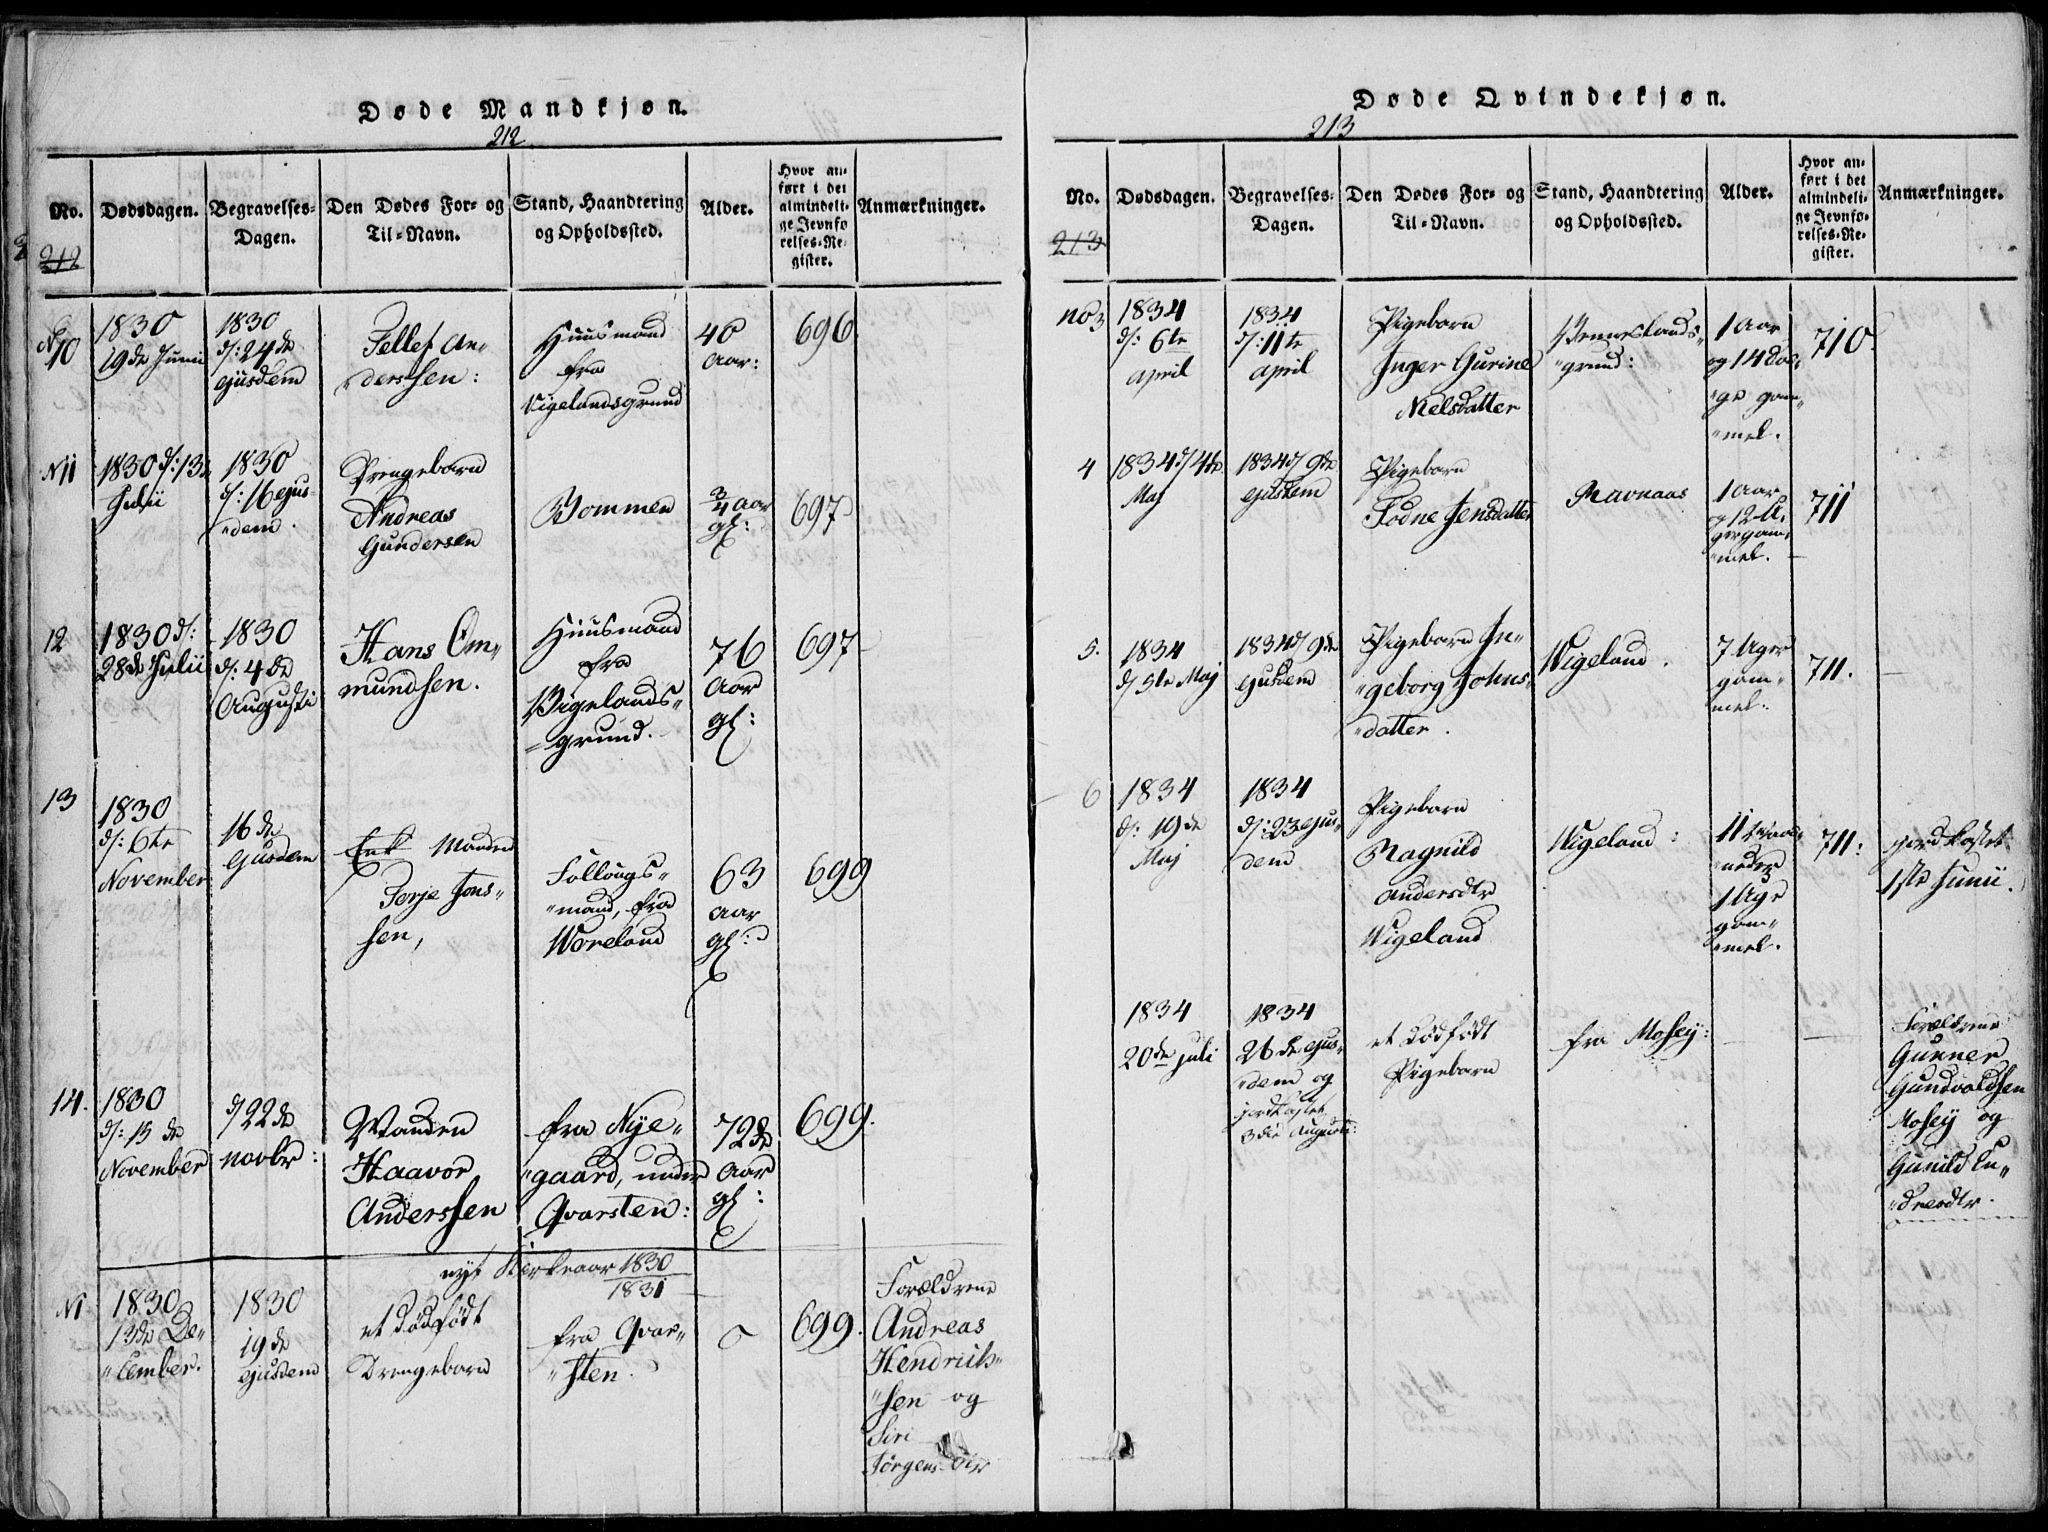 Døde Mandkjøn.
212
No. Dødsdagen. Begravelses- Dagen. Den Dødes For- og Til-Navn. Stand, Haandtering og Opholdssted. Alder. Hvor anført i det almindelige Jevnførelses-Register. Anmærkninger.
212
N10
1830
19de Junii
1830
d: 24de
ejusdem
Tellef An-
derssen:
Huusmand
fra
Vigelandsgrund
40
Aar:
696
N11
1830 d: 13de
Julii
1830
d: 16 ejus-
dem.
Drengebarn
Andreas
Gundersen
Bommen
3/4 Aar
gl:
697
12
1830 d:
28de Julii
1830
d: 4de
Augusti
Hans Om-
mundsen.
Huusmand
fra
Vigelands-
grund.
76
Aar
gl:
697
13
1830
d: 6te
November
16de
ejusdem
Enk Manden
Terje Jons-
sen,
Føllougs-
mand, fra
Woreland
63
Aar
gl:
699
14.
1830
d: 15de
November
d 22de
novbr:
Manden
Haavor
Anderssen
fra Nye-
gaard, under
Qvarsten:
72de
Aar
gl:
699.
nyt Kirkeaar 1830
1831
N1
1830
13de De-
cember.
1830
19de
ejusdem
et dødfødt
Drengebarn
fra Qvar-
sten.
0
699.
Forældrene
Andreas
Hendrich-
sen og
Siri
Jørgensdtr
Døde Qvindekjøn.
213
No. Dødsdagen. Begravelses- Dagen. Den Dødes For- og Til-Navn. Stand, Haandtering og Opholdssted. Alder. Hvor anført i det almindelige Jevnførelses-Register. Anmærkninger.
213
No 3
1834
d: 6te
april
1834
d: 11te
april
Pigebarn
Inger Gurine
Nielsdatter
Venneslands-
grund:
1 Aar
og 14 da-
ge gam-
mel.
710.
4
1834 d 4de
Maj
1834 d 9de
ejusdem
Pigebarn
Todne Jensdatter
Ravnaas
1 Aar
og 12 U-
ger gam-
mel.
711
5.
1834
d 5te Maj
1834 d 9de
ejusdem
Pigebarn In-
geborg Johns-
datter.
Wigeland.
7 Uger
gam-
mel.
711.
6
1834
d: 19de
Maj
1834
d: 23 ejus-
dem
Pigebarn
Ragnild
Andersdtr
Wigeland
Wigeland:
11 Maa-
neder
1 Uge
gam-
mel.
711:
jordkastet
1ste Junii.
1834
20de juli
1834
26de ejus-
dem og
jordkastet
3die Augusti:
et dødfødt
Pigebarn
fra Mosey:
Forældrene
Gunner
Gundvaldsen
Mosey og
Gunild En-
dresdtr.